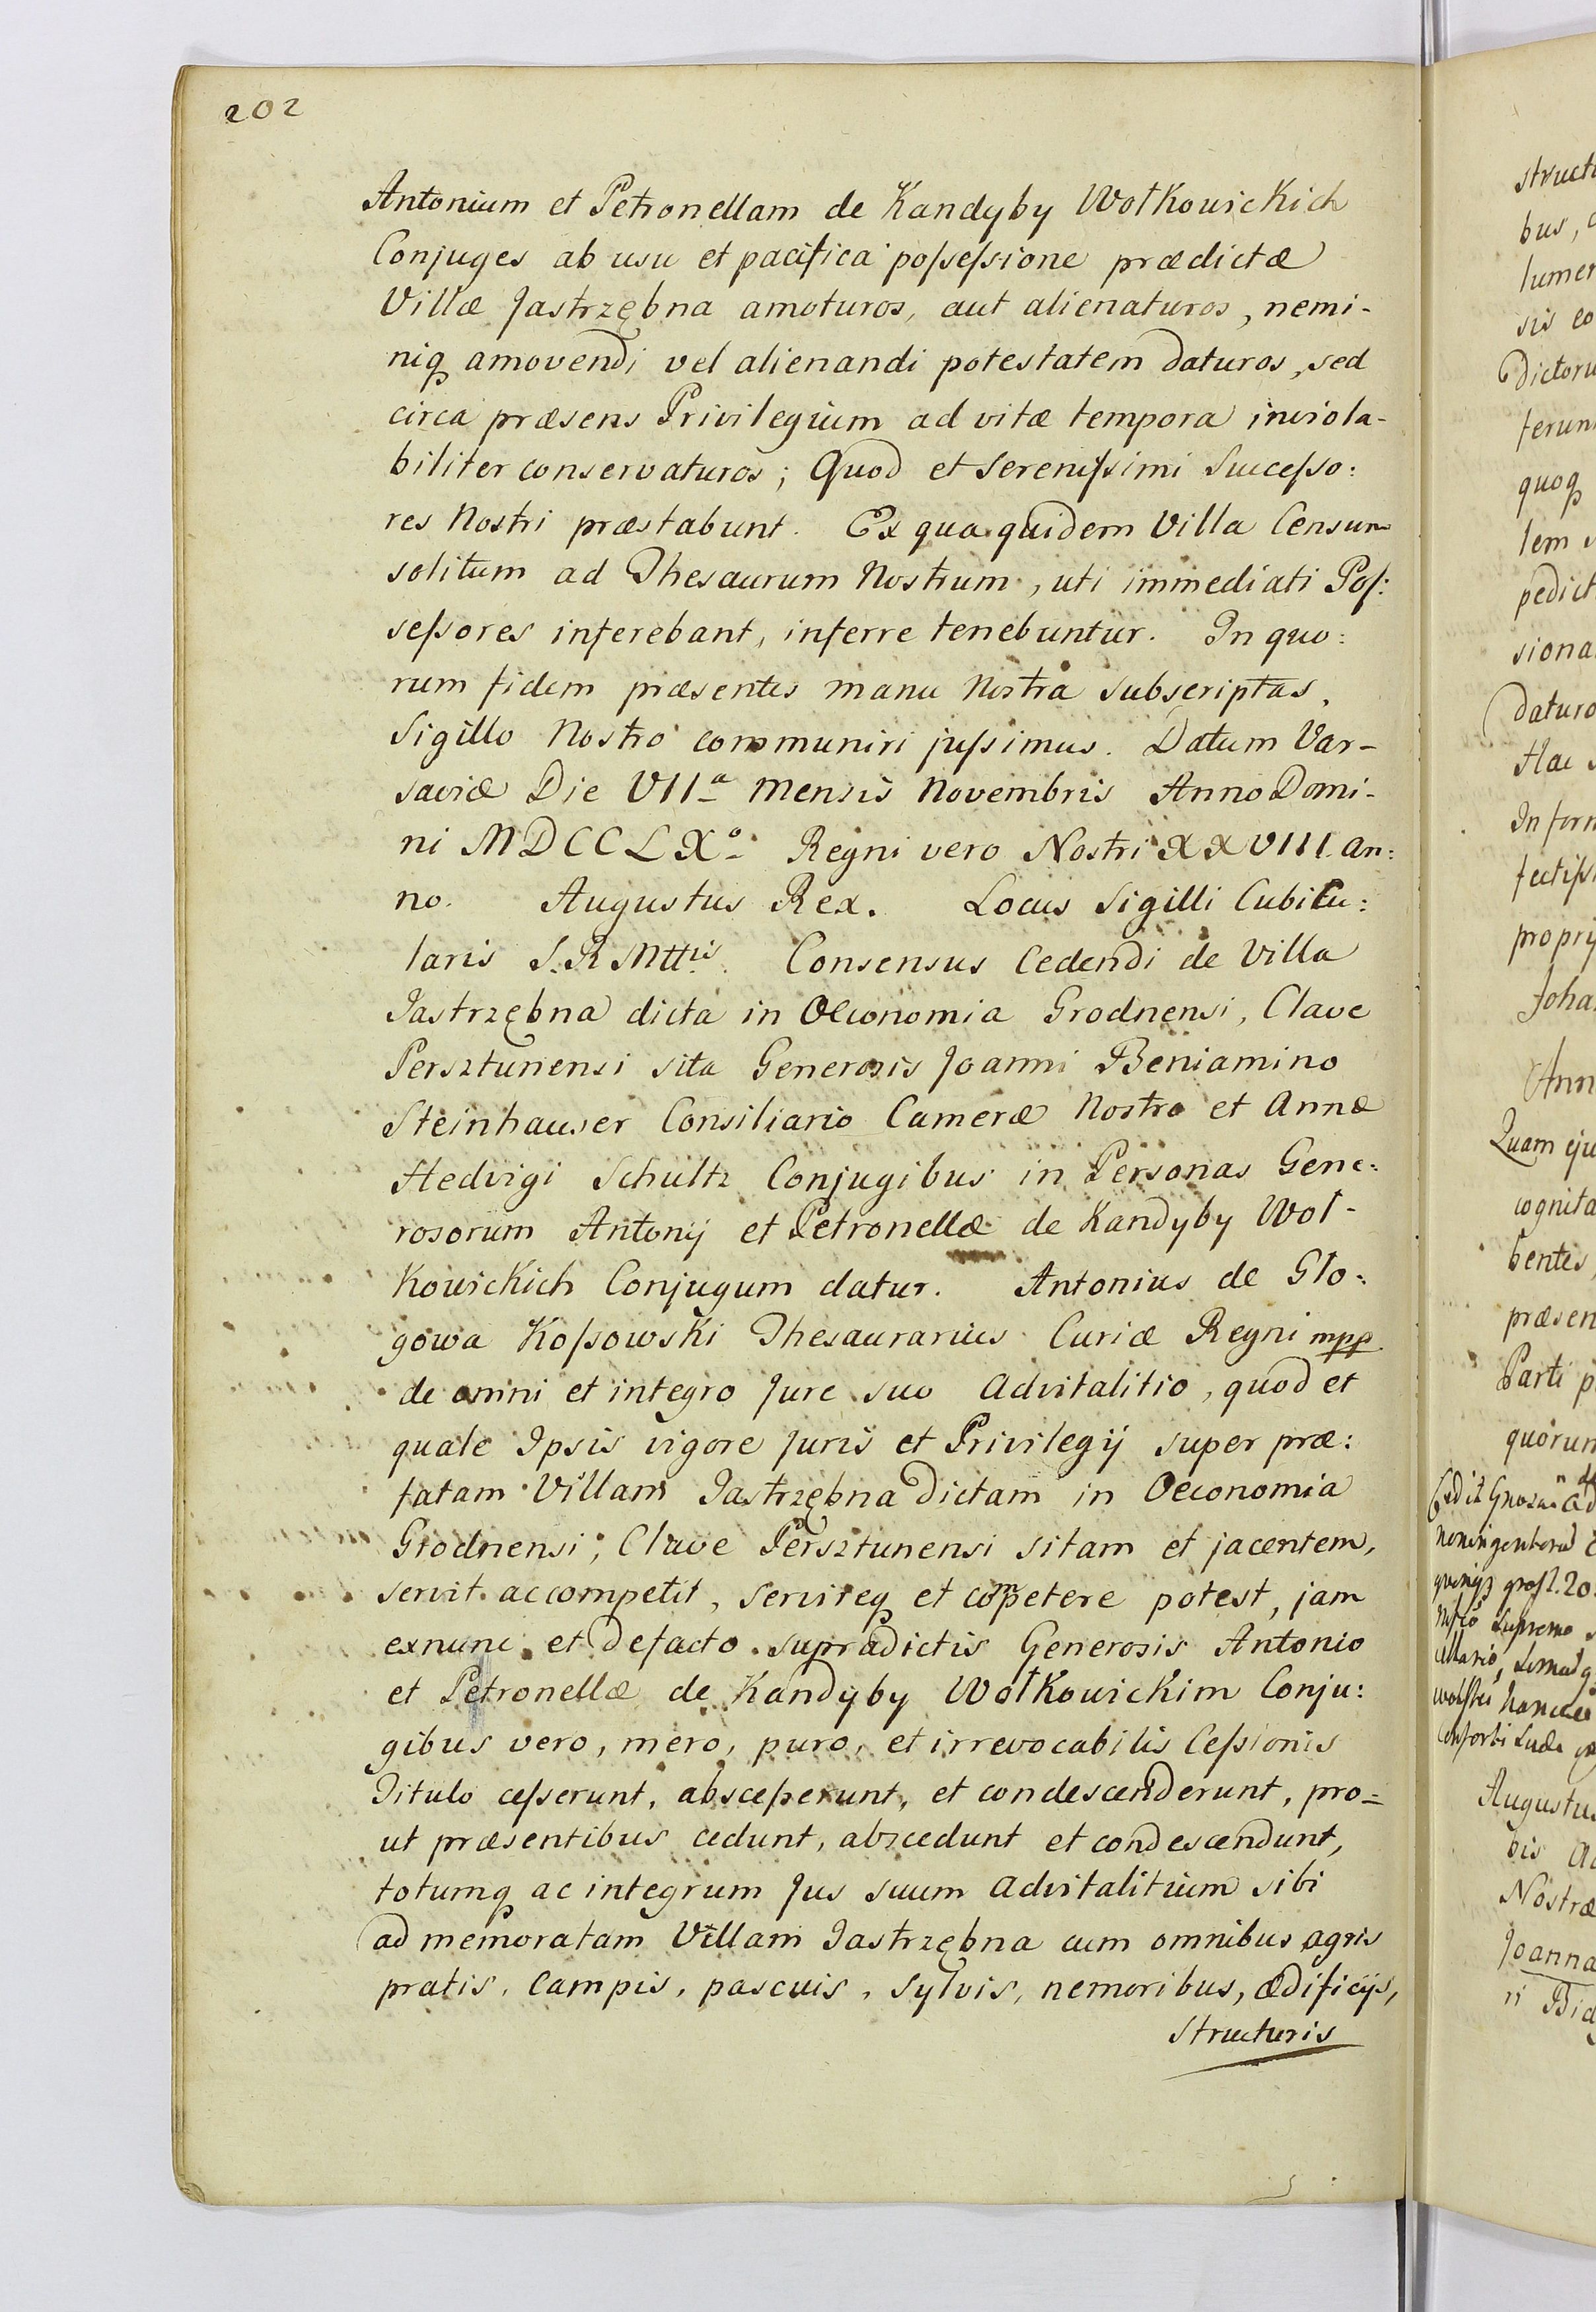 202
Antonium et Petronellam de Kandyby Wołkowickich
Conjuges ab usu et pacifica poſseſsione prædictæ
Villæ Jastrzębna amoturos, aut alienaturos, nemi-
niq amovendi vel alienandi potestatem daturos, sed
circa præsens Privilegium ad vitæ tempora inviola-
biliter conservaturos; Quod et Sereniſsimi Succeſso:
res Nostri præstabunt. Ex qua quidem Villa Censum
solitum ad Thesaurum Nostrum, uti immediati Poſ:
seſsores inferebant, inferre tenebuntur. In quo:
rum fidem præsentes manu Nostra subscriptas,
Sigillo Nostro communiri juſsimus. Datum Var-
saviæ Die VIIa Mensis Novembris Anno Domi-
ni MDCCLXo Regni vero Nostri XXVIII. An:
no. Augustus Rex. Locus Sigilli Cubicu:
laris S. R Mttis. Consensus Cedendi de Villa
Jastrzębna dicta in Oeconomia Grodnensi, Clave
Persztunensi sita Generosis Joanni Beniamino
Steinhauser Consiliario Cameræ Nostræ et Annæ
Hedvigi Schultz Conjugibus in Personas Gene:
rosorum Antonij et Petronellæ de Kandyby Woł-
kowickich Conjugum datur. Antonius de Gło:
gowa Koſsowski Thesaurarius Curiæ Regni mpp
de omni et integro Jure suo Advitalitio, quod et
quale Ipsis vigore Juris et Privilegij super præ:
fatam Villam Jastrzębna dictam in Oeconomia
Grodnensi, Clave Persztunensi sitam et jacentem,
servit ac competit, servireq et com̄petere potest, jam
exnunc et defacto supradictis Generosis Antonio
et Petronellæ de Kandyby Wołkowickim Conju:
gibus vero, mero, puro, et irrevocabilis Ceſsionis
Titulo ceſserunt, absceſserunt, et condescenderunt, pro=
ut præsentibus cedunt, abscedunt et condescendunt,
totumq ac integrum Jus suum Advitalitium sibi
ad memoratam Villam Jastrzębna cum omnibus agris
pratis, Campis, pascuis, Sylvis, nemoribus, ædificijs,
Structuris
struct
bus,
lumer
sis eo
dictoru
ferun
quoq
lem
pedict
siona
daturo
Hac
In form
propri
Joha
Ann
Quam eju
cognita
bentes,
præsen
Parti p
quorum
Augustus
Nostræ
Joanna